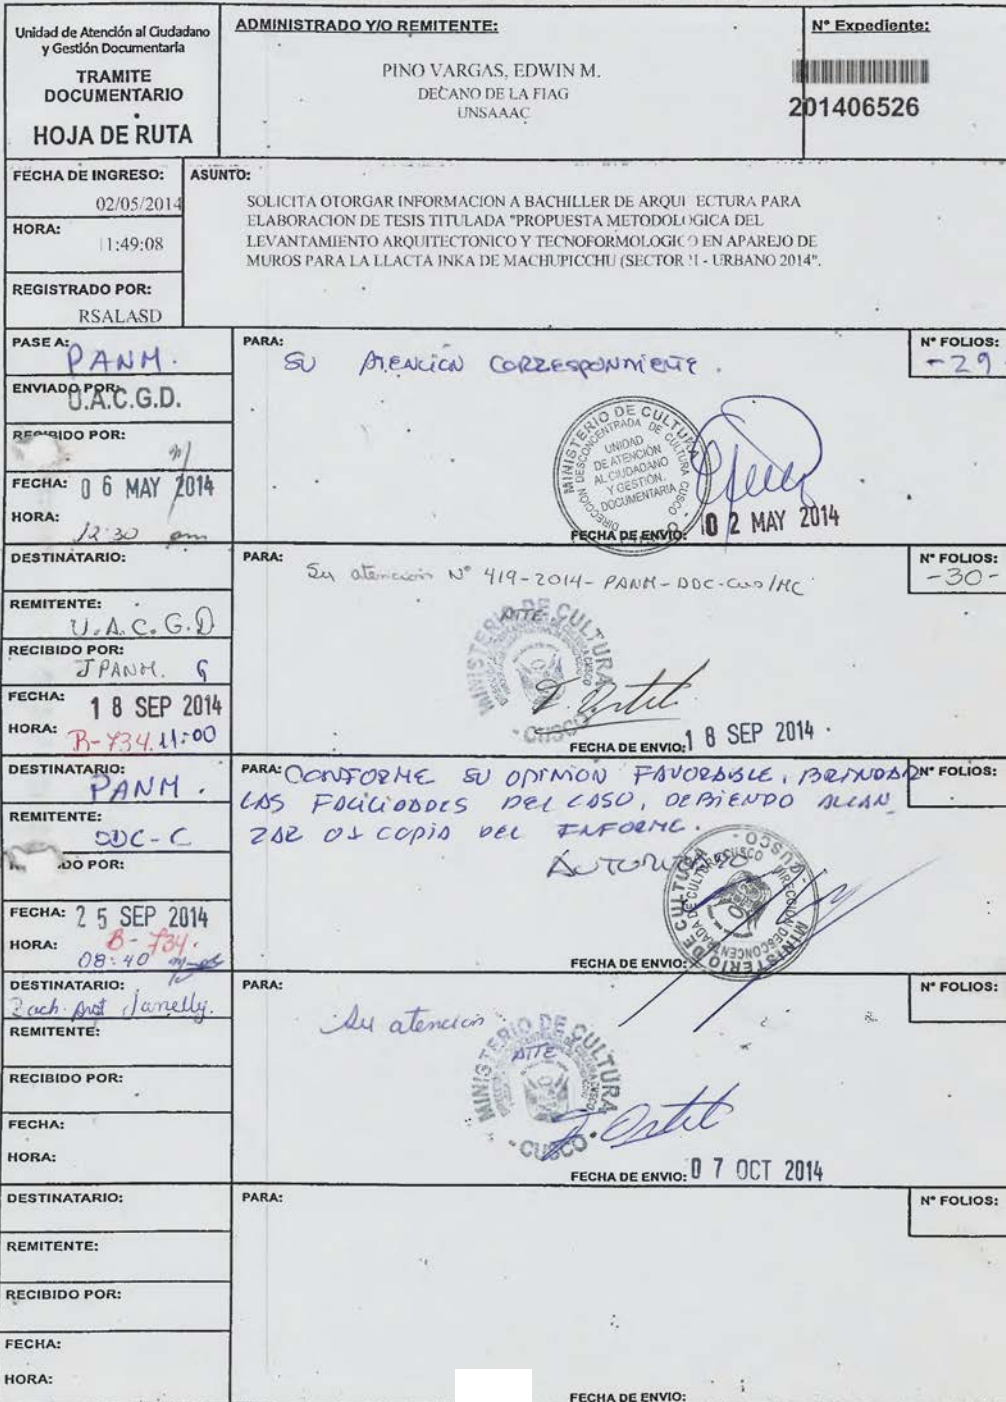 Unidad de Atención al Ciudadano
y Gestión Documentaria
TRAMITE
DOCUMENTARIO
HOJA DE RUTA
ADMINISTRADO Y/O REMITENTE:
PINO VARGAS, EDWIN M.
DECANO DE LA FIAG
UNSAAAC
N° Expediente:
201406526
FECHA DE INGRESO:
02/05/2014
HORA:
11:49:08
REGISTRADO POR:
RSALASD
ASUNTO:
SOLICITA OTORGAR INFORMACION A BACHILLER DE ARQUI ECTURA PARA
ELABORACION DE TESIS TITULADA "PROPUESTA METODOLOGICA DEL
LEVANTAMIENTO ARQUITECTONICO Y TECNOFORMOLOGICO EN APAREJO DE
MUROS PARA LA LLACTA INKA DE MACHUPICCHU (SECTOR - URBANO 2014".
PASE A:
PANM.
ENVIADO POR:
U.A.C.G.D.
RECIBIDO POR:
FECHA: 0 6 MAY 2014
HORA:
12:30 pm
PARA:
SU ATENCION CORRESPONDIENTE.
N° FOLIOS:
-29
MINISTERIO DE CULTURA
DIRECCIÓN DESCONCENTRADA DE CULTURA CUSCO
UNIDAD
DE ATENCIÓN
AL CIUDADANO
Y GESTIÓN
DOCUMENTARIA
FECHA DE ENVIO: 0 2 MAY 2014
DESTINATARIO:
REMITENTE:
U.A.C.G.D
RECIBIDO POR:
JPANM.
FECHA:
1 8 SEP 2014
HORA: B-734. 11:00
PARA:
Su atencion N° 419-2014-PANM-DDC-Cus/MC
N° FOLIOS:
-30-
ATTE
MINISTERIO DE CULTURA
CUSCO
FECHA DE ENVIO: 1 8 SEP 2014
DESTINATARIO:
PANM.
REMITENTE:
DDC-C
DO POR:
FECHA: 2 5 SEP 2014
B-734.
HORA:
08:40
PARA: CONFORME SU OPINION FAVORABLE, BRINDAR
LAS FACILIDADES DEL CASO, DEBIENDO ALCAN
ZAR 01 COPIA DEL INFORME.
AUTORIZADO
N° FOLIOS:
MINISTERIO DE CULTURA - CUSCO
DIRECCIÓN DESCONCENTRADA DE CULTURA CUSCO
FECHA DE ENVIO:
DESTINATARIO:
Bach. Janelly.
REMITENTE:
RECIBIDO POR:
FECHA:
HORA:
PARA:
Su atencion
ATTE
MINISTERIO DE CULTURA
CUSCO
N° FOLIOS:
FECHA DE ENVIO: 0 7 OCT 2014
DESTINATARIO:
REMITENTE:
RECIBIDO POR:
FECHA:
HORA:
PARA:
N° FOLIOS:
FECHA DE ENVIO: